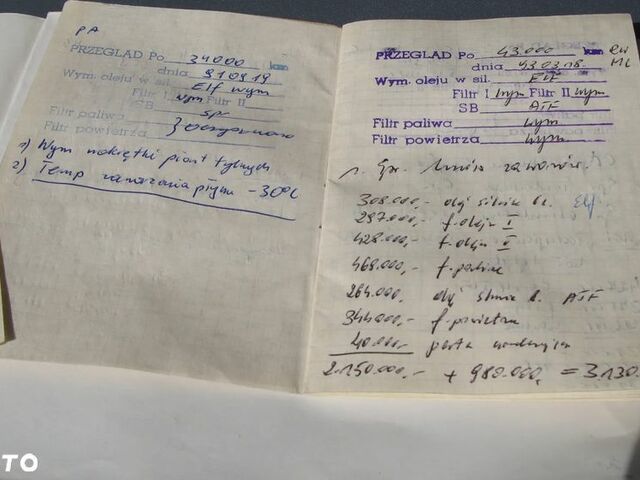 PA
PRZEGLĄD Po 34000 km
dnia
Wym. oleju w sil. Elf wym
Filtr I wym Filtr II
SB spr
Filtr paliwa
Filtr powietrza
1) Wym nakrętki piast tylnych
2) Temp zamarzania płynu -30°C
PRZEGLĄD Po 43.000 km
dnia 93.03.18.
Wym. oleju w sil. Elf
Filtr I wym Filtr II wym
SB ATF
Filtr paliwa wym
Filtr powietrza wym
308.000,- olej silnik Elf
297.000,- f. oleju I
428.000,- f. oleju II
468.000,- f. paliwa
264.000, olej ATF
344.000,- f. powietrza
40.000,- pasta
2.150.000,- + 980.000, = 3.130.
TO